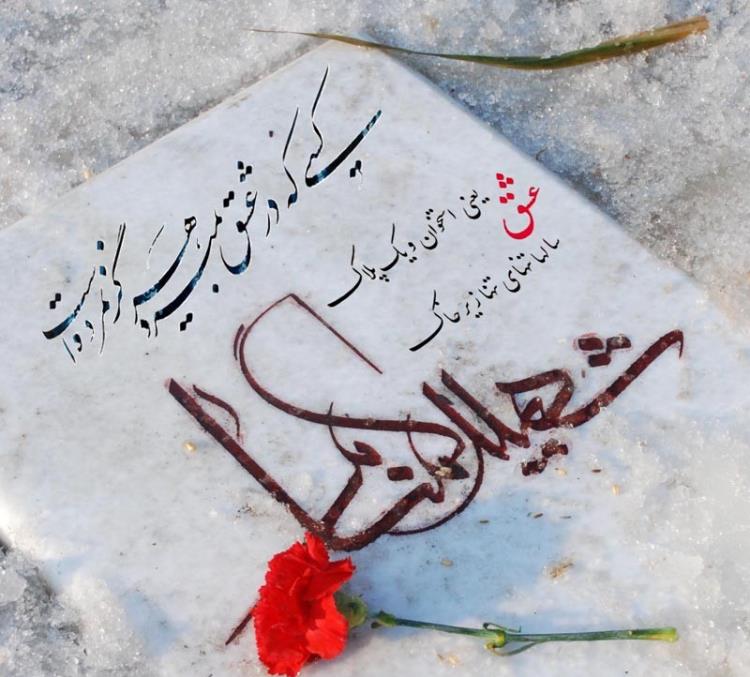 کسی که در عشق بمیرد هرگز نمرده است
عشق
یعنی استخوان و یک پلاک
سالها تنهای تنها زیر خاک
شهید